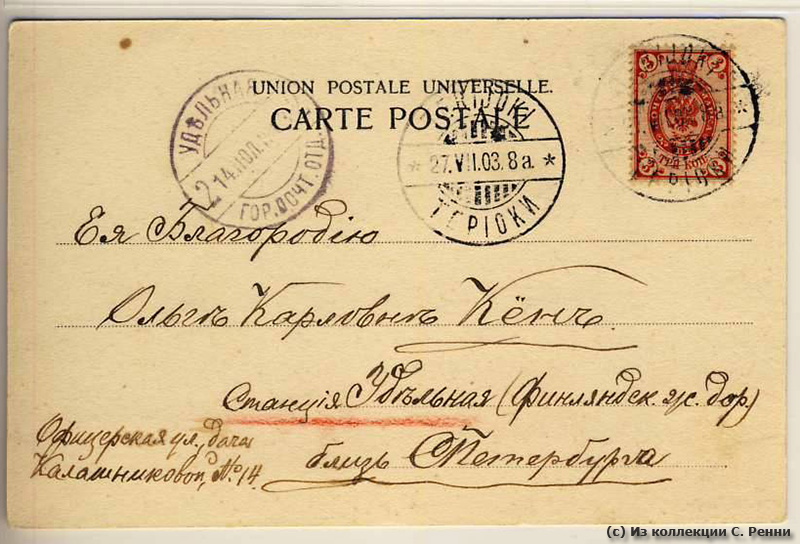 UNION POSTALE UNIVERSELLE.
CARTE POSTALE
УДѢЛЬНАЯ
2 14.ІЮЛ.
ГОР.ПОЧТ.ОТД.
TERIJOKI
27.VII.03. 8a.
ТЕРІОКИ
3 3
3 3
Ея Благородію
Ольгѣ Карловнѣ Кёнъ.
Станція Удѣльная (Финляндск. ж. дор)
близь СПетербурга
Офицерская ул., дача
Калашниковой, № 14.
(c) Из коллекции С. Ренни